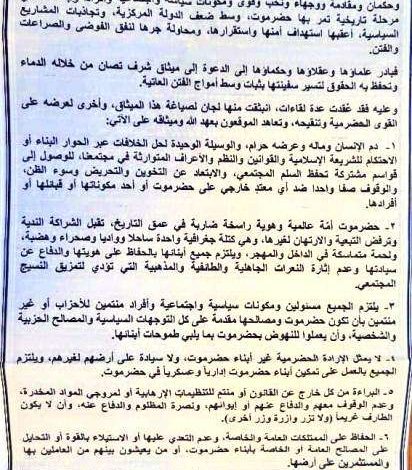 وحكمان ومقادمة ووجهاء ونخب وقوى ومكونات سياسية واجتماعية
مرحلة تاريخية تمر بها حضرموت، وسط ضعف الدولة المركزية، وتجاذبات المشاريع
السياسية، أعقبها استهداف أمنها واستقرارها، ومحاولة جرها لنفق الفوضى والصراعات
والفتن.
فبادر علماؤها وعقلاؤها وحكماؤها إلى الدعوة إلى ميثاق شرف تصان من خلاله الدماء
وتحفظ به الحقوق لتسير سفينتها بثبات وسط أمواج الفتن العاتية.
وعليه فقد عُقدت عدة لقاءات، انبثقت منها لجان لصياغة هذا الميثاق، وأخرى لعرضه على
القوى الحضرمية وتنقيحه، وتعاهد الموقعون بعهد الله وميثاقه على الآتي:
١- دم الإنسان وماله وعرضه حرام، والوسيلة الوحيدة لحل الخلافات عبر الحوار البناء أو
الاحتكام للشريعة الإسلامية والقوانين والنظم والأعراف المتوارثة في مجتمعنا، للوصول إلى
قواسم مشتركة تحفظ السلم المجتمعي، والابتعاد عن التخوين والتحريض وسوء الظن،
والوقوف صفا واحدا ضد أي معتدٍ خارجي على حضرموت أو أحد مكوناتها أو قبائلها أو
أفرادها.
٢- حضرموت أمّة عالمية وهوية راسخة ضاربة في عمق التاريخ، تقبل الشراكة الندية
وترفض التبعية والارتهان لغيرها، وهي كتلة جغرافية واحدة ساحلا وواديا وصحراء وهضبة،
ولحمة متماسكة في الداخل والمهجر، ويلتزم جميع أبنائها بالحفاظ على هويتها والدفاع عن
سيادتها وعدم إثارة النعرات الجاهلية والطائفية والمذهبية التي تؤدي لتمزيق النسيج
المجتمعي.
٣- يلتزم الجميع مسئولين ومكونات سياسية واجتماعية وأفراد منتمين للأحزاب أو غير
منتمين بأن تكون حضرموت ومصالحها مقدمة على كل التوجهات السياسية والمصالح الحزبية
والشخصية، وأن يعملوا للنهوض بحضرموت بما يلبي طموحات أبنائها.
٤- لا يمثل الإرادة الحضرمية غير أبناء حضرموت، ولا سيادة على أرضهم لغيرهم، ويلتزم
الجميع بالعمل على تمكين أبناء حضرموت إدارياً وعسكرياً في حضرموت.
٥- البراءة من كل خارج عن القانون أو منتمٍ للتنظيمات الإرهابية أو لمروجي المواد المخدرة،
وعدم الوقوف معهم والدفاع عنهم أو إيوائهم، ونصرة المظلوم والدفاع عنه، وأن لا يكون
الطارف غريماً (ولا تزر وازرة وزر أخرى).
٦- الحفاظ على الممتلكات العامة والخاصة، وعدم التعدي عليها أو الاستيلاء بالقوة أو التحايل
على المصالح العامة أو الخاصة بأبناء حضرموت، أو من يعيشون بينهم من العاملين بها
والمستثمرين على أرضها.